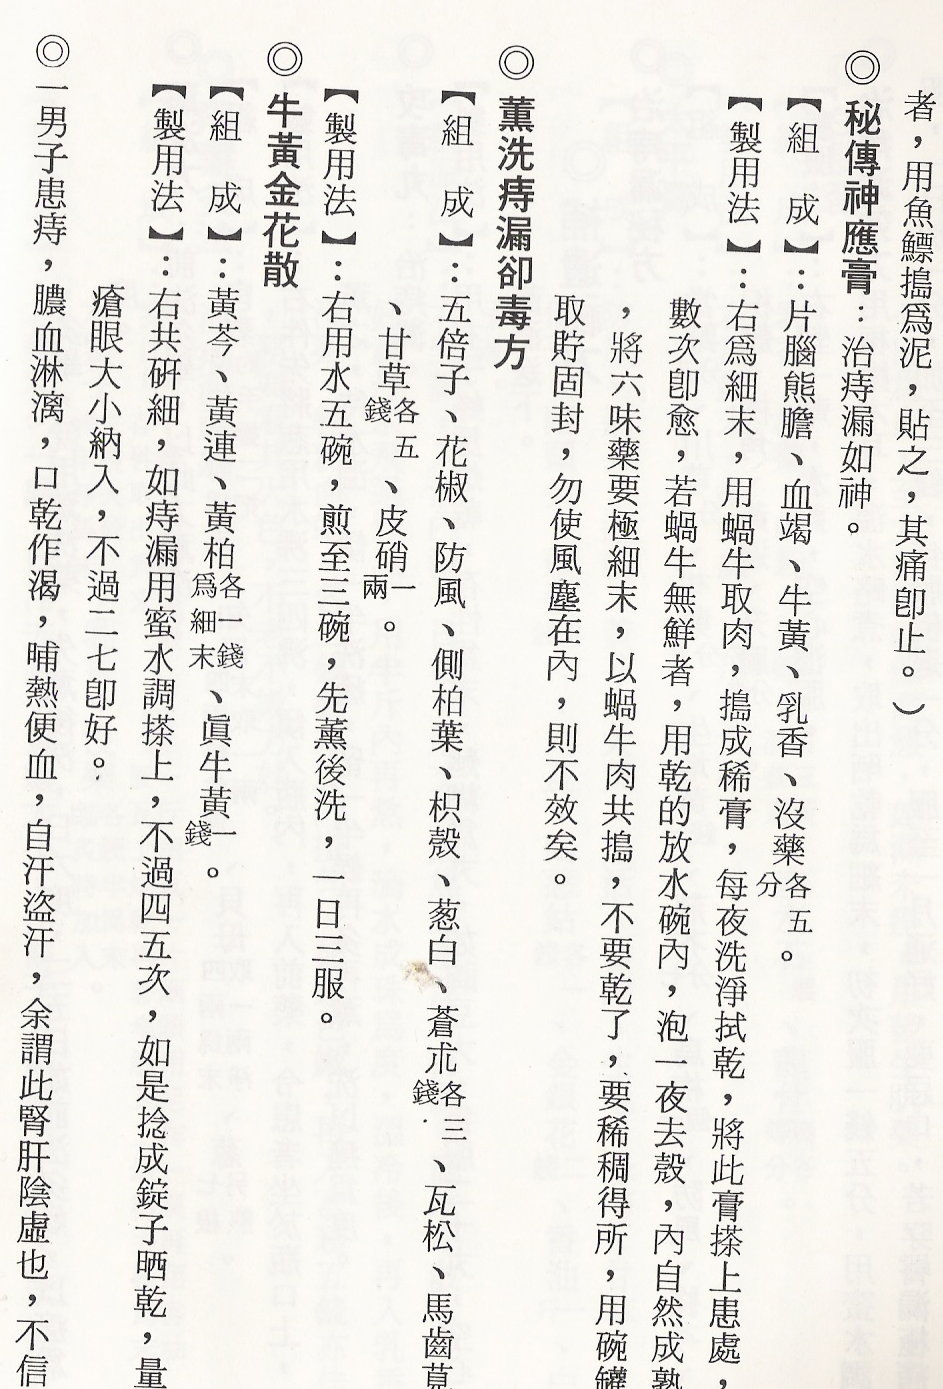 者，用魚鰾搗爲泥，貼之，其痛卽止。）
◎秘傳神應膏：治痔漏如神。
【組　成】：片腦熊膽、血竭、牛黃、乳香、沒藥各五分。
【製用法】：右爲細末，用蝸牛取肉，搗成稀膏，每夜洗淨拭乾，將此膏搽上患處，
數次卽愈，若蝸牛無鮮者，用乾的放水碗內，泡一夜去殼，內自然成熟
，將六味藥要極細末，以蝸牛肉共搗，不要乾了，要稀稠得所，用碗罐
取貯固封，勿使風塵在內，則不效矣。
◎薰洗痔漏卻毒方
【組　成】：五倍子、花椒、防風、側柏葉、枳殼、葱白、蒼朮各三錢、瓦松、馬齒莧
、甘草各五錢、皮硝一兩。
【製用法】：右用水五碗，煎至三碗，先薰後洗，一日三服。
◎牛黃金花散
【組　成】：黃芩、黃連、黃柏各一錢爲細末、眞牛黃一錢。
【製用法】：右共研細，如痔漏用蜜水調搽上，不過四五次，如是捻成錠子晒乾，量
瘡眼大小納入，不過二七卽好。
◎一男子患痔，膿血淋漓，口乾作渴，晡熱便血，自汗盜汗，余謂此腎肝陰虛也，不信